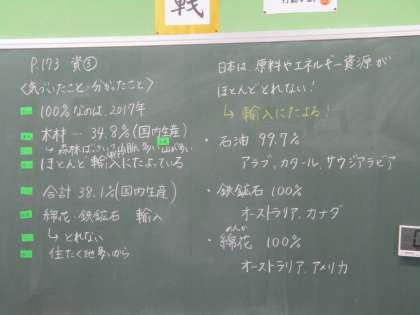 戦
P.173 資①
〈気づいたこと・分かったこと〉
100%なのは、2017年
木材… 34.8%(国内生産)
ほとんど輸入にたよっている
合計 38.1%(国内生産)
綿花・鉄鉱石 輸入
↳とれない
住たく地多いから
日本は、原料やエネルギー資源が
ほとんどとれない!
↳輸入にたよる!
・石油 99.7%
アラブ、カタール、サウジアラビア
・鉄鉱石 100%
オーストラリア、カナダ
めんか
・綿花 100%
オーストラリア、アメリカ